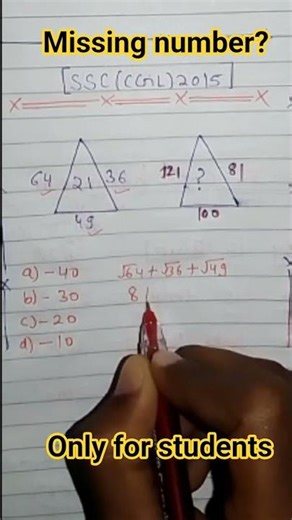 Missing number?
[SSC(CGL)2015]
x x x x
64 21 36 121 ? 81
49 100
a) - 40 √64 + √36 + √49
b) - 30 8
c) - 20
d) - 10
Only for students